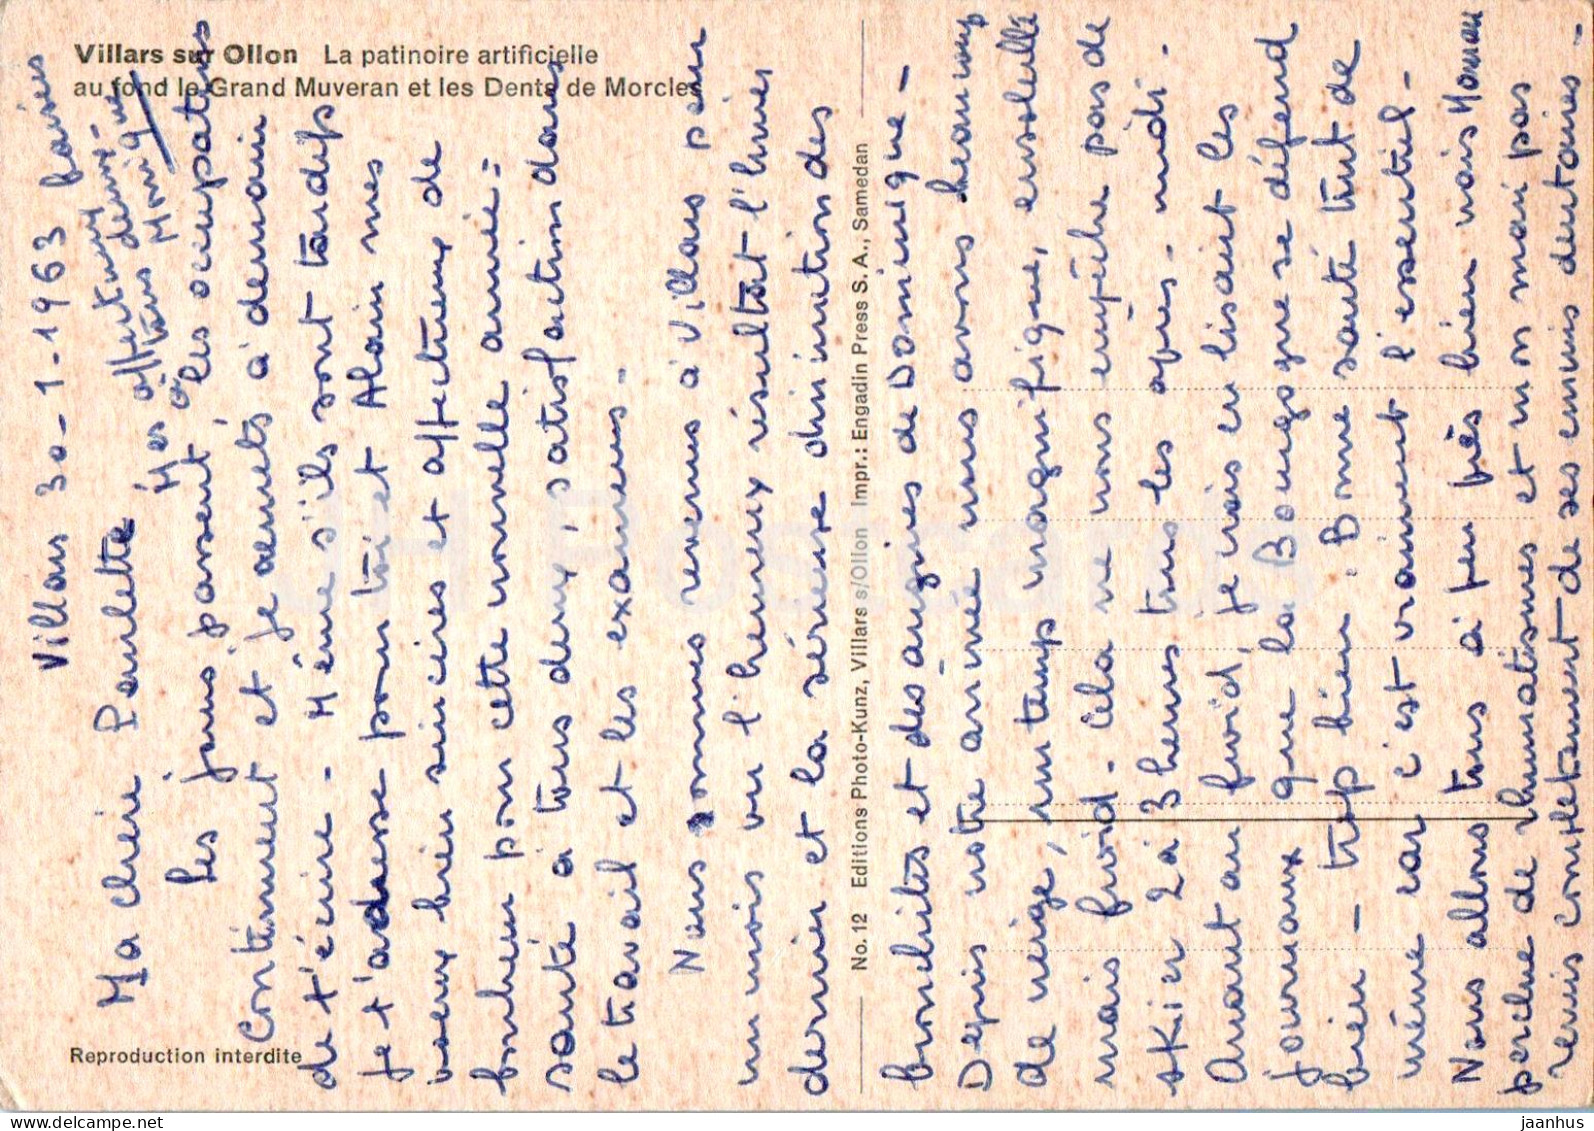 Villars sur Ollon La patinoire artificielle
au fond le Grand Muveran et les Dents de Morcles
Villars 30-1-1963
Ma chère Paulette
Les jours passent, les occupations
continuent et je remets à demain
de t'écrire - Même s'ils sont tardifs
je t'adresse pour toi et Alain mes
voeux bien sincères et affectueux de
bonheur pour cette nouvelle année =
santé à tous deux, satisfaction dans
le travail et les examens -
Nous sommes revenus à Villars pour
un mois vu l'heureux résultat l'hiver
dernier et la sérieuse diminution des
bronchites et des angines de Dominique -
Depuis notre arrivée nous avons beaucoup
de neige, un temps magnifique, ensoleillé
mais froid - cela ne nous empêche pas de
skier 2 à 3 heures tous les après-midi -
Quant au froid, je vois en lisant les
journaux que la Bourgogne se défend
bien - trop bien. Bonne santé tout de
même car c'est vraiment l'essentiel -
Nous allons tous à peu près bien mais Maman
percluse de rhumatismes et mon mari pas
remis complètement de ses ennuis dentaires -
Mes affectueux
à tous deux -
Monique
No. 12 Editions Photo-Kunz, Villars s/Ollon Impr.: Engadin Press S. A., Samedan
Reproduction interdite
HPostcards
jaanhus